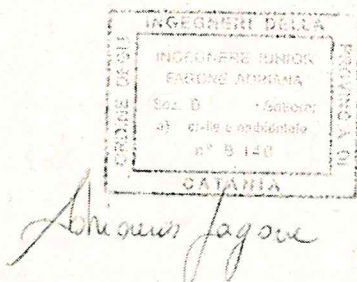 ORDINE DEGLI
INGEGNERI DELLA
PROVINCIA DI
CATANIA
INGEGNERE IUNIOR
FAGONE ADRIANA
Sez. B Settore:
a) civile e ambientale
n° B 140
Adriana Fagone